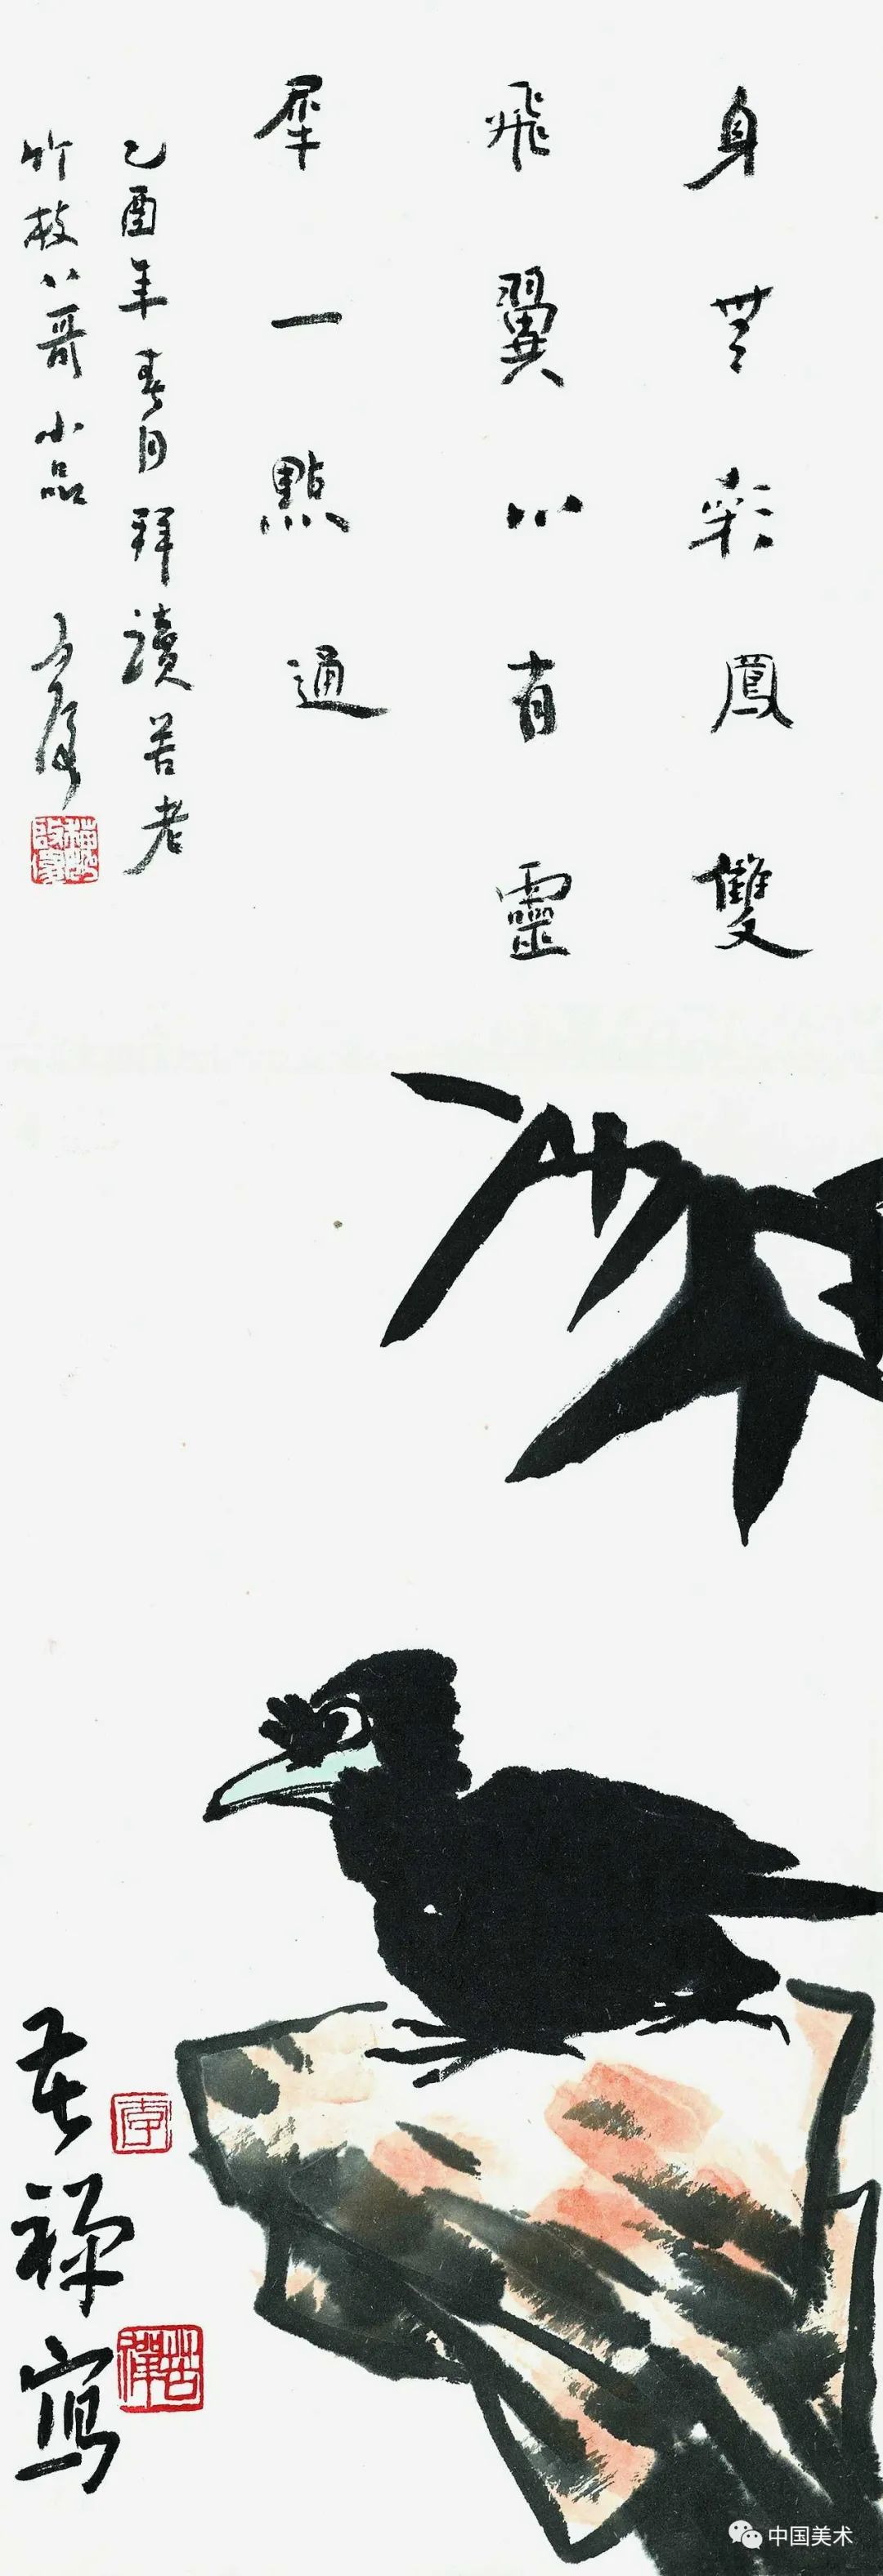 身無彩鳳雙
飛翼心有靈
犀一點通
乙酉年春月拜讀苦老
竹枝八哥小品
苦禪寫
李
苦禪
中国美术